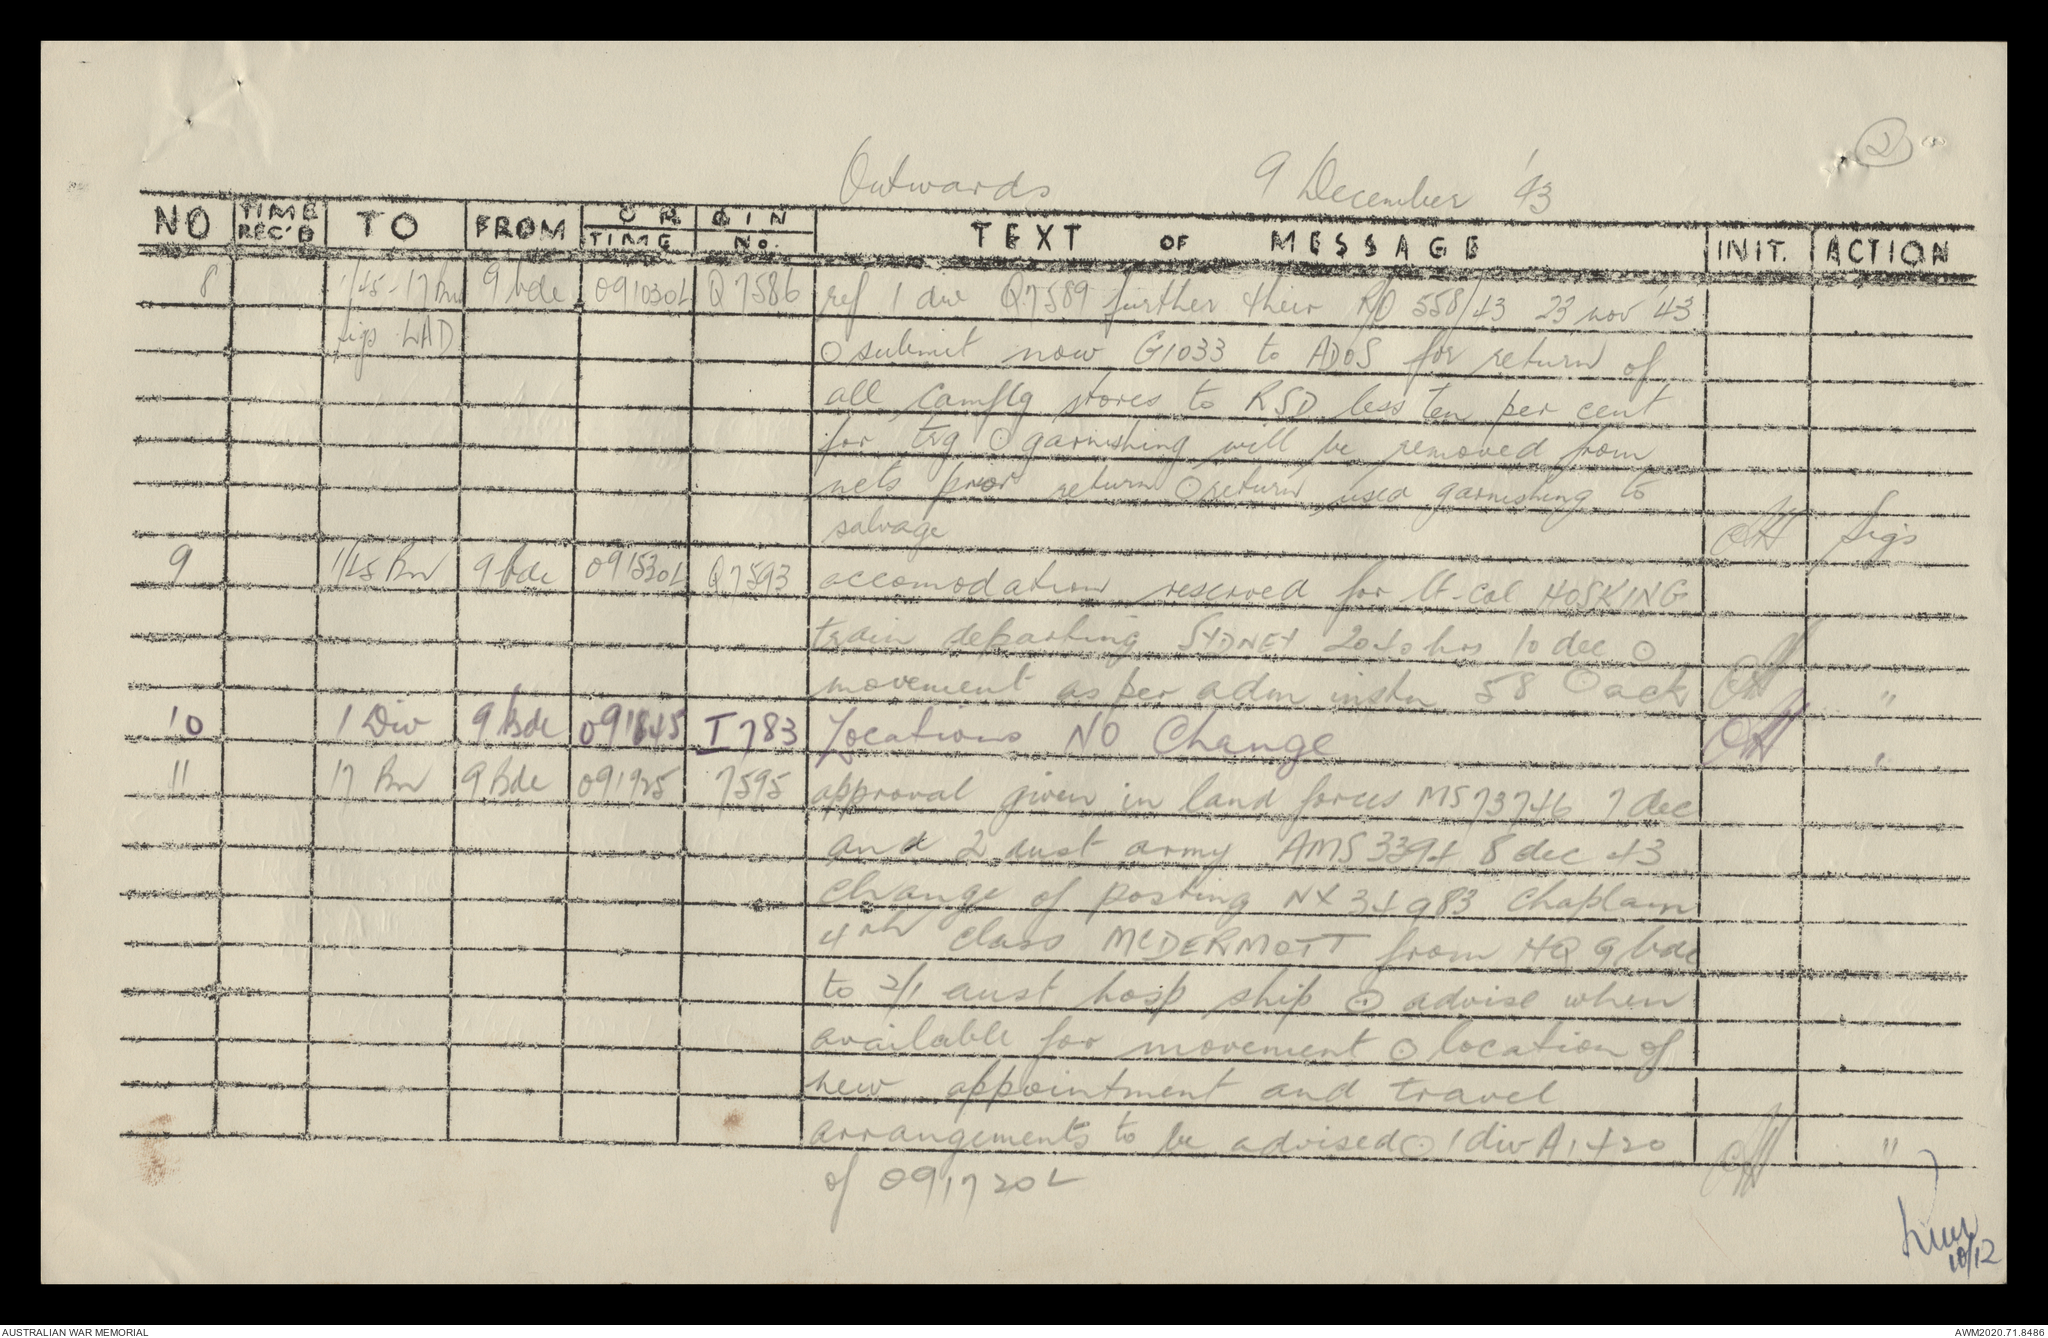 2
Outwards 9 December '43
NO TIME REC'D TO FROM ORIGIN TIME No. TEXT OF MESSAGE INIT. ACTION
8 1/45-17 Bn 9 bde 091030L Q7586 ref 1 div Q7589 further their RO 558/43 23 nov '43
sigs LAD
⊙ submit now G1033 to ADOS for return of
all camflg stores to RSD less ten per cent
for trg ⊙ garnishing will be removed from
nets prior return ⊙ return used garnishing to
salvage Sigs
9 1/45 Bn 9 bde 091530L Q7593 accomodation reserved for lt-col HOSKING
train departing SYDNEY 2040 hrs 10 dec ⊙
movement as per adm instn 58 ⊙ ack "
10 1 Div 9 Bde 091845 I783 Locations NO Change "
11 17 Bn 9 Bde 091925 7595 approval given in land forces MS73746 7 dec
and 2 aust army AMS3394 8 dec 43
change of posting NX34983 Chaplain
4th class McDERMOTT from HQ 9 bde
to 2/1 aust hosp ship ⊙ advise when
available for movement ⊙ location of
new appointment and travel
arrangements to be advised ⊙ 1 div A1420 "
of 091720L
10/12
AUSTRALIAN WAR MEMORIAL AWM2020.71.8486